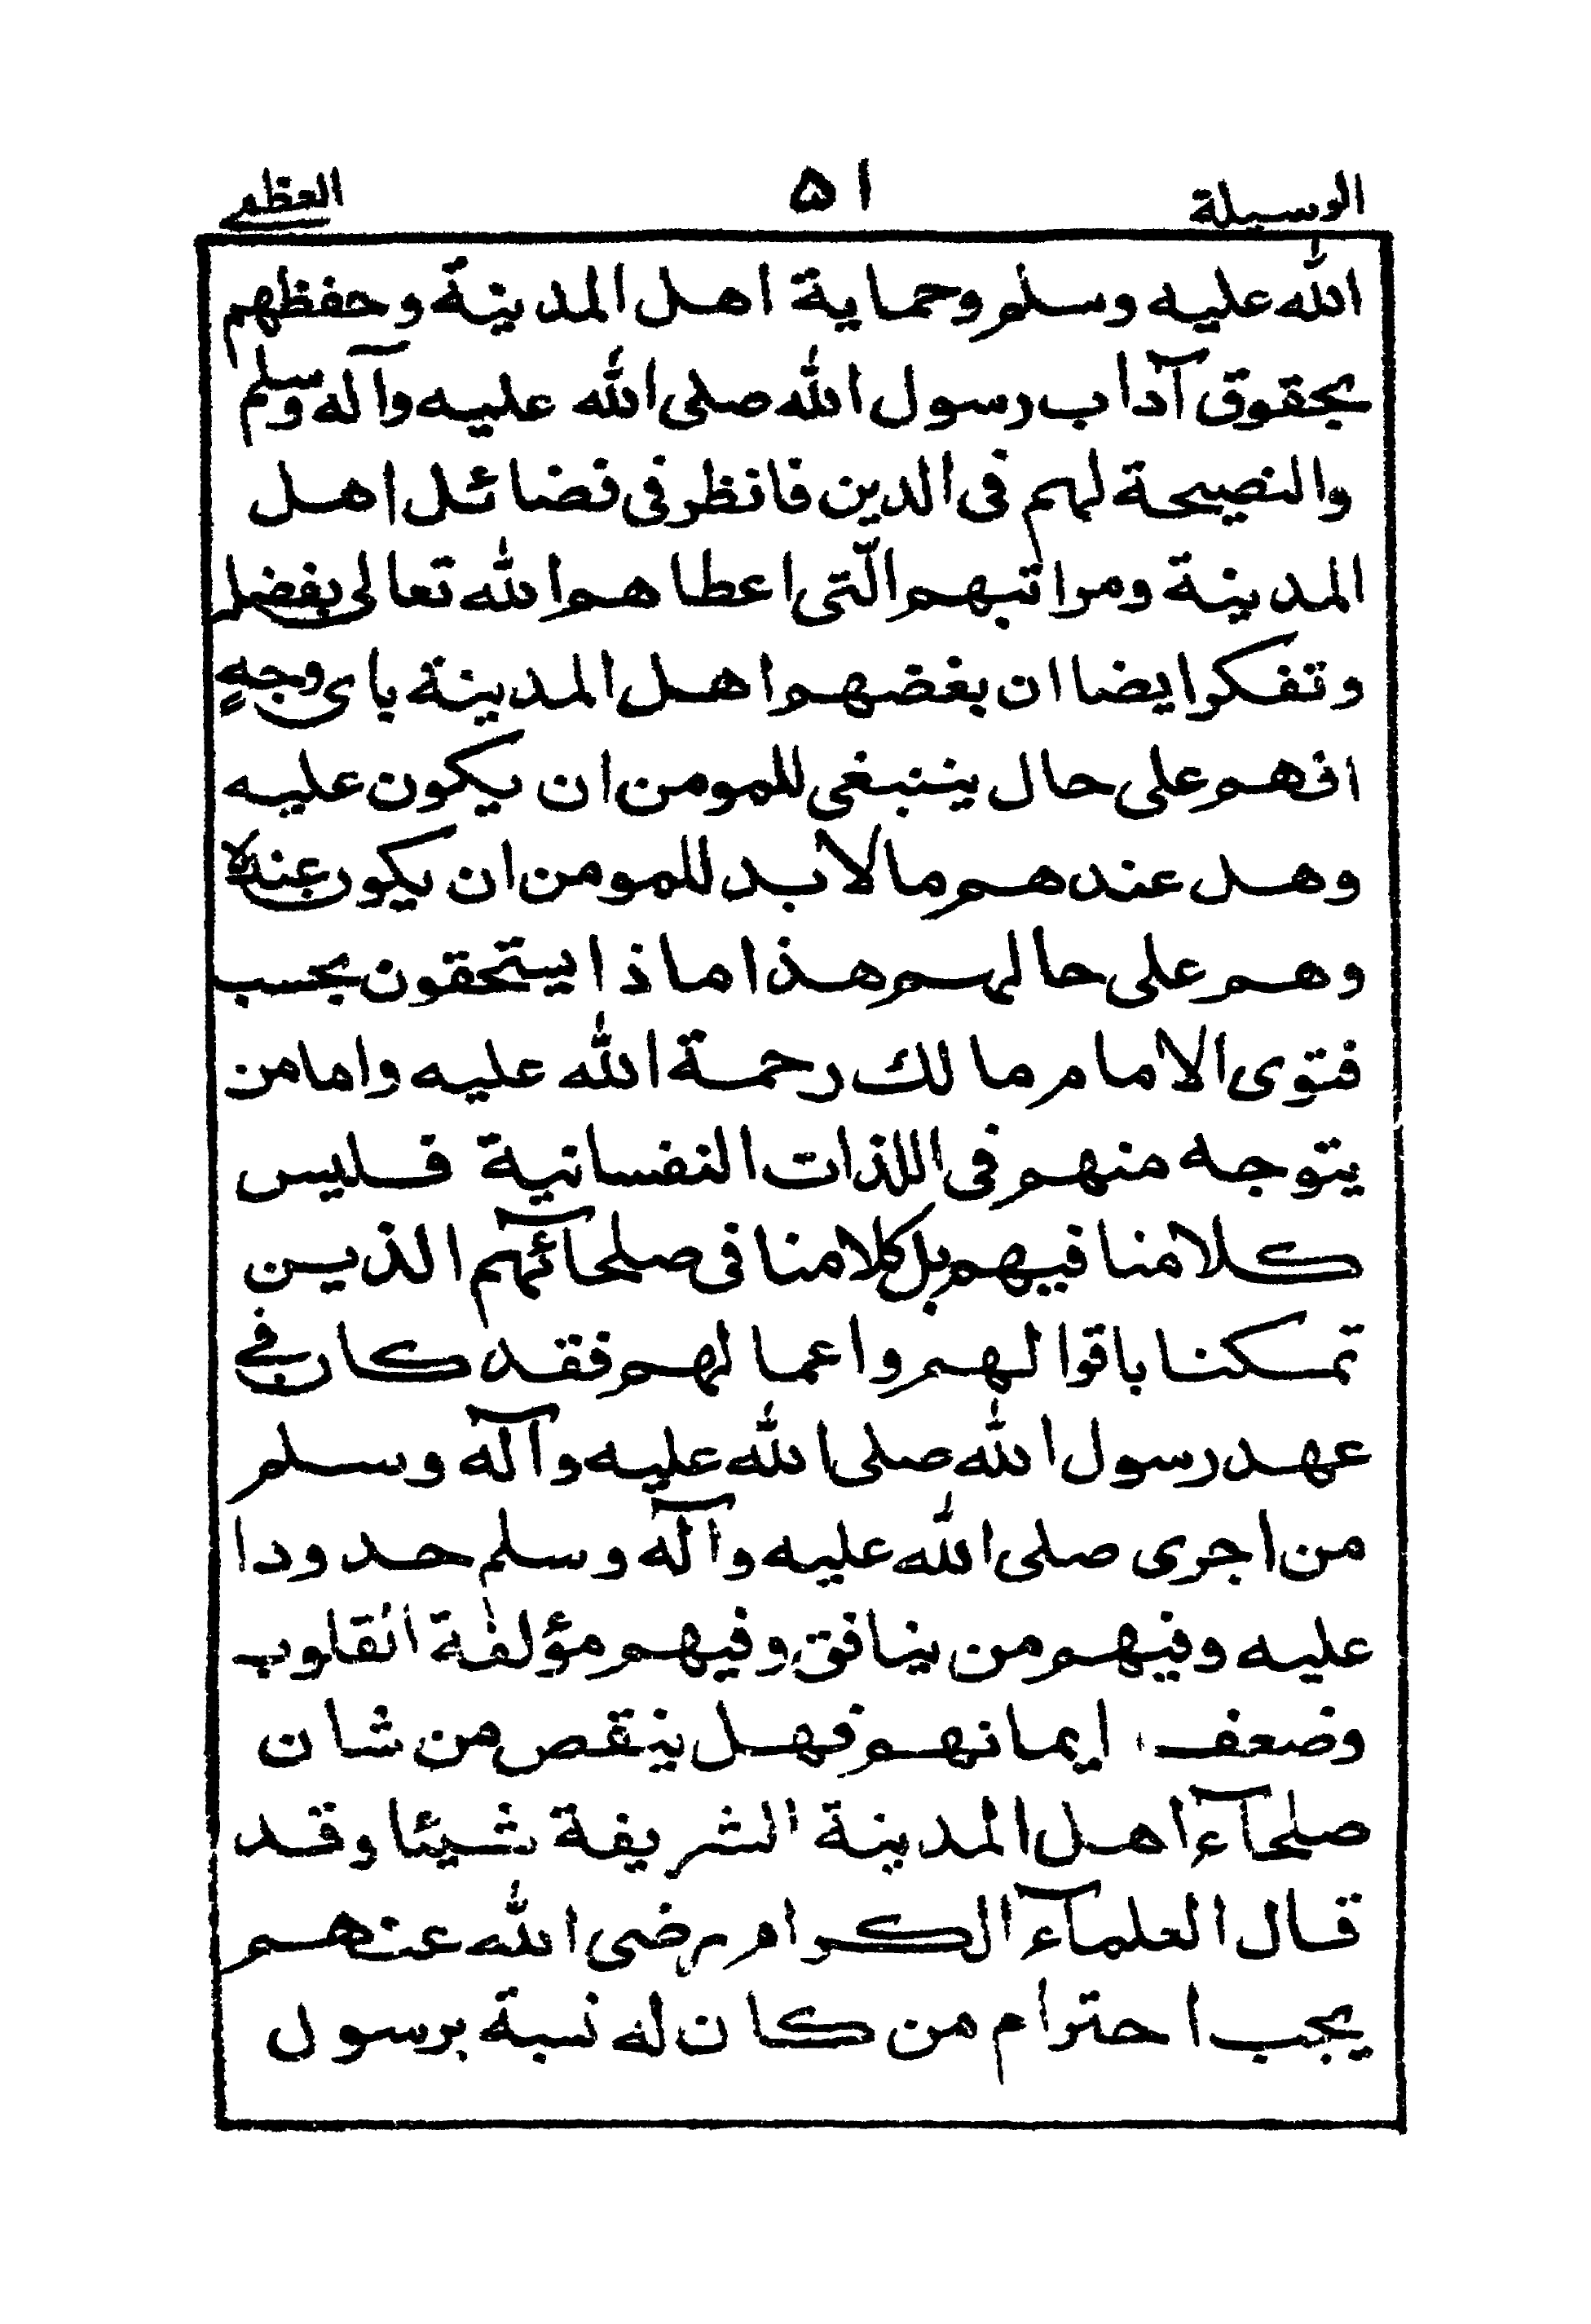 الوسيلة ٥١ العظمى
الله عليه وسلم وحماية اهل المدينة وحفظهم
بحقوق آداب رسول الله صلى الله عليه وآله وسلم
والنصيحة لهم فى الدين فانظر فى فضائل اهل
المدينة ومراتبهم الّتى اعطاهم الله تعالى بفضله
وتفكر ايضا ان بغضهم اهل المدينة باى وجهٍ
انهم على حال ينبغى للمومن ان يكون عليه
وهل عندهم مالابد للمومن ان يكون عنده
وهم على حالهم هذا ماذا يستحقون بحسب
فتوى الامام مالك رحمة الله عليه واما من
يتوجه منهم فى اللذات النفسانية فليس
كلامنا فيهم بل كلامنا فى صلحآئهم الذين
تمسكنا باقوالهم واعمالهم فقد كان فى
عهد رسول الله صلى الله عليه وآله وسلم
من اجرى صلى الله عليه وآله وسلم حدودا
عليه وفيهم من ينافق وفيهم مؤلفة القلوب
وضعف ايمانهم فهل ينقص من شان
صلحآء اهل المدينة الشريفة شيئا وقد
قال العلمآء الكرام رضى الله عنهم
يجب احترام من كان له نسبة برسول